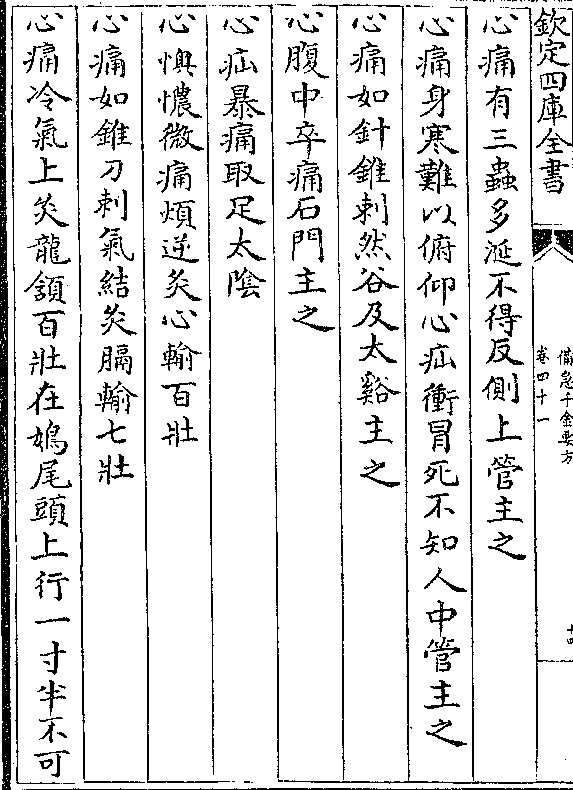 欽定四庫全書
備急千金要方
卷四十一
十四
心痛有三蟲多涎不得反側上管主之
心痛身寒難以俯仰心疝衝冒死不知人中管主之
心痛如針錐刺然谷及太谿主之
心腹中卒痛石門主之
心疝暴痛取足太陰
心懊憹微痛煩逆灸心輸百壯
心痛如錐刀刺氣結灸膈輸七壯
心痛冷氣上灸龍頷百壯在鳩尾頭上行一寸半不可